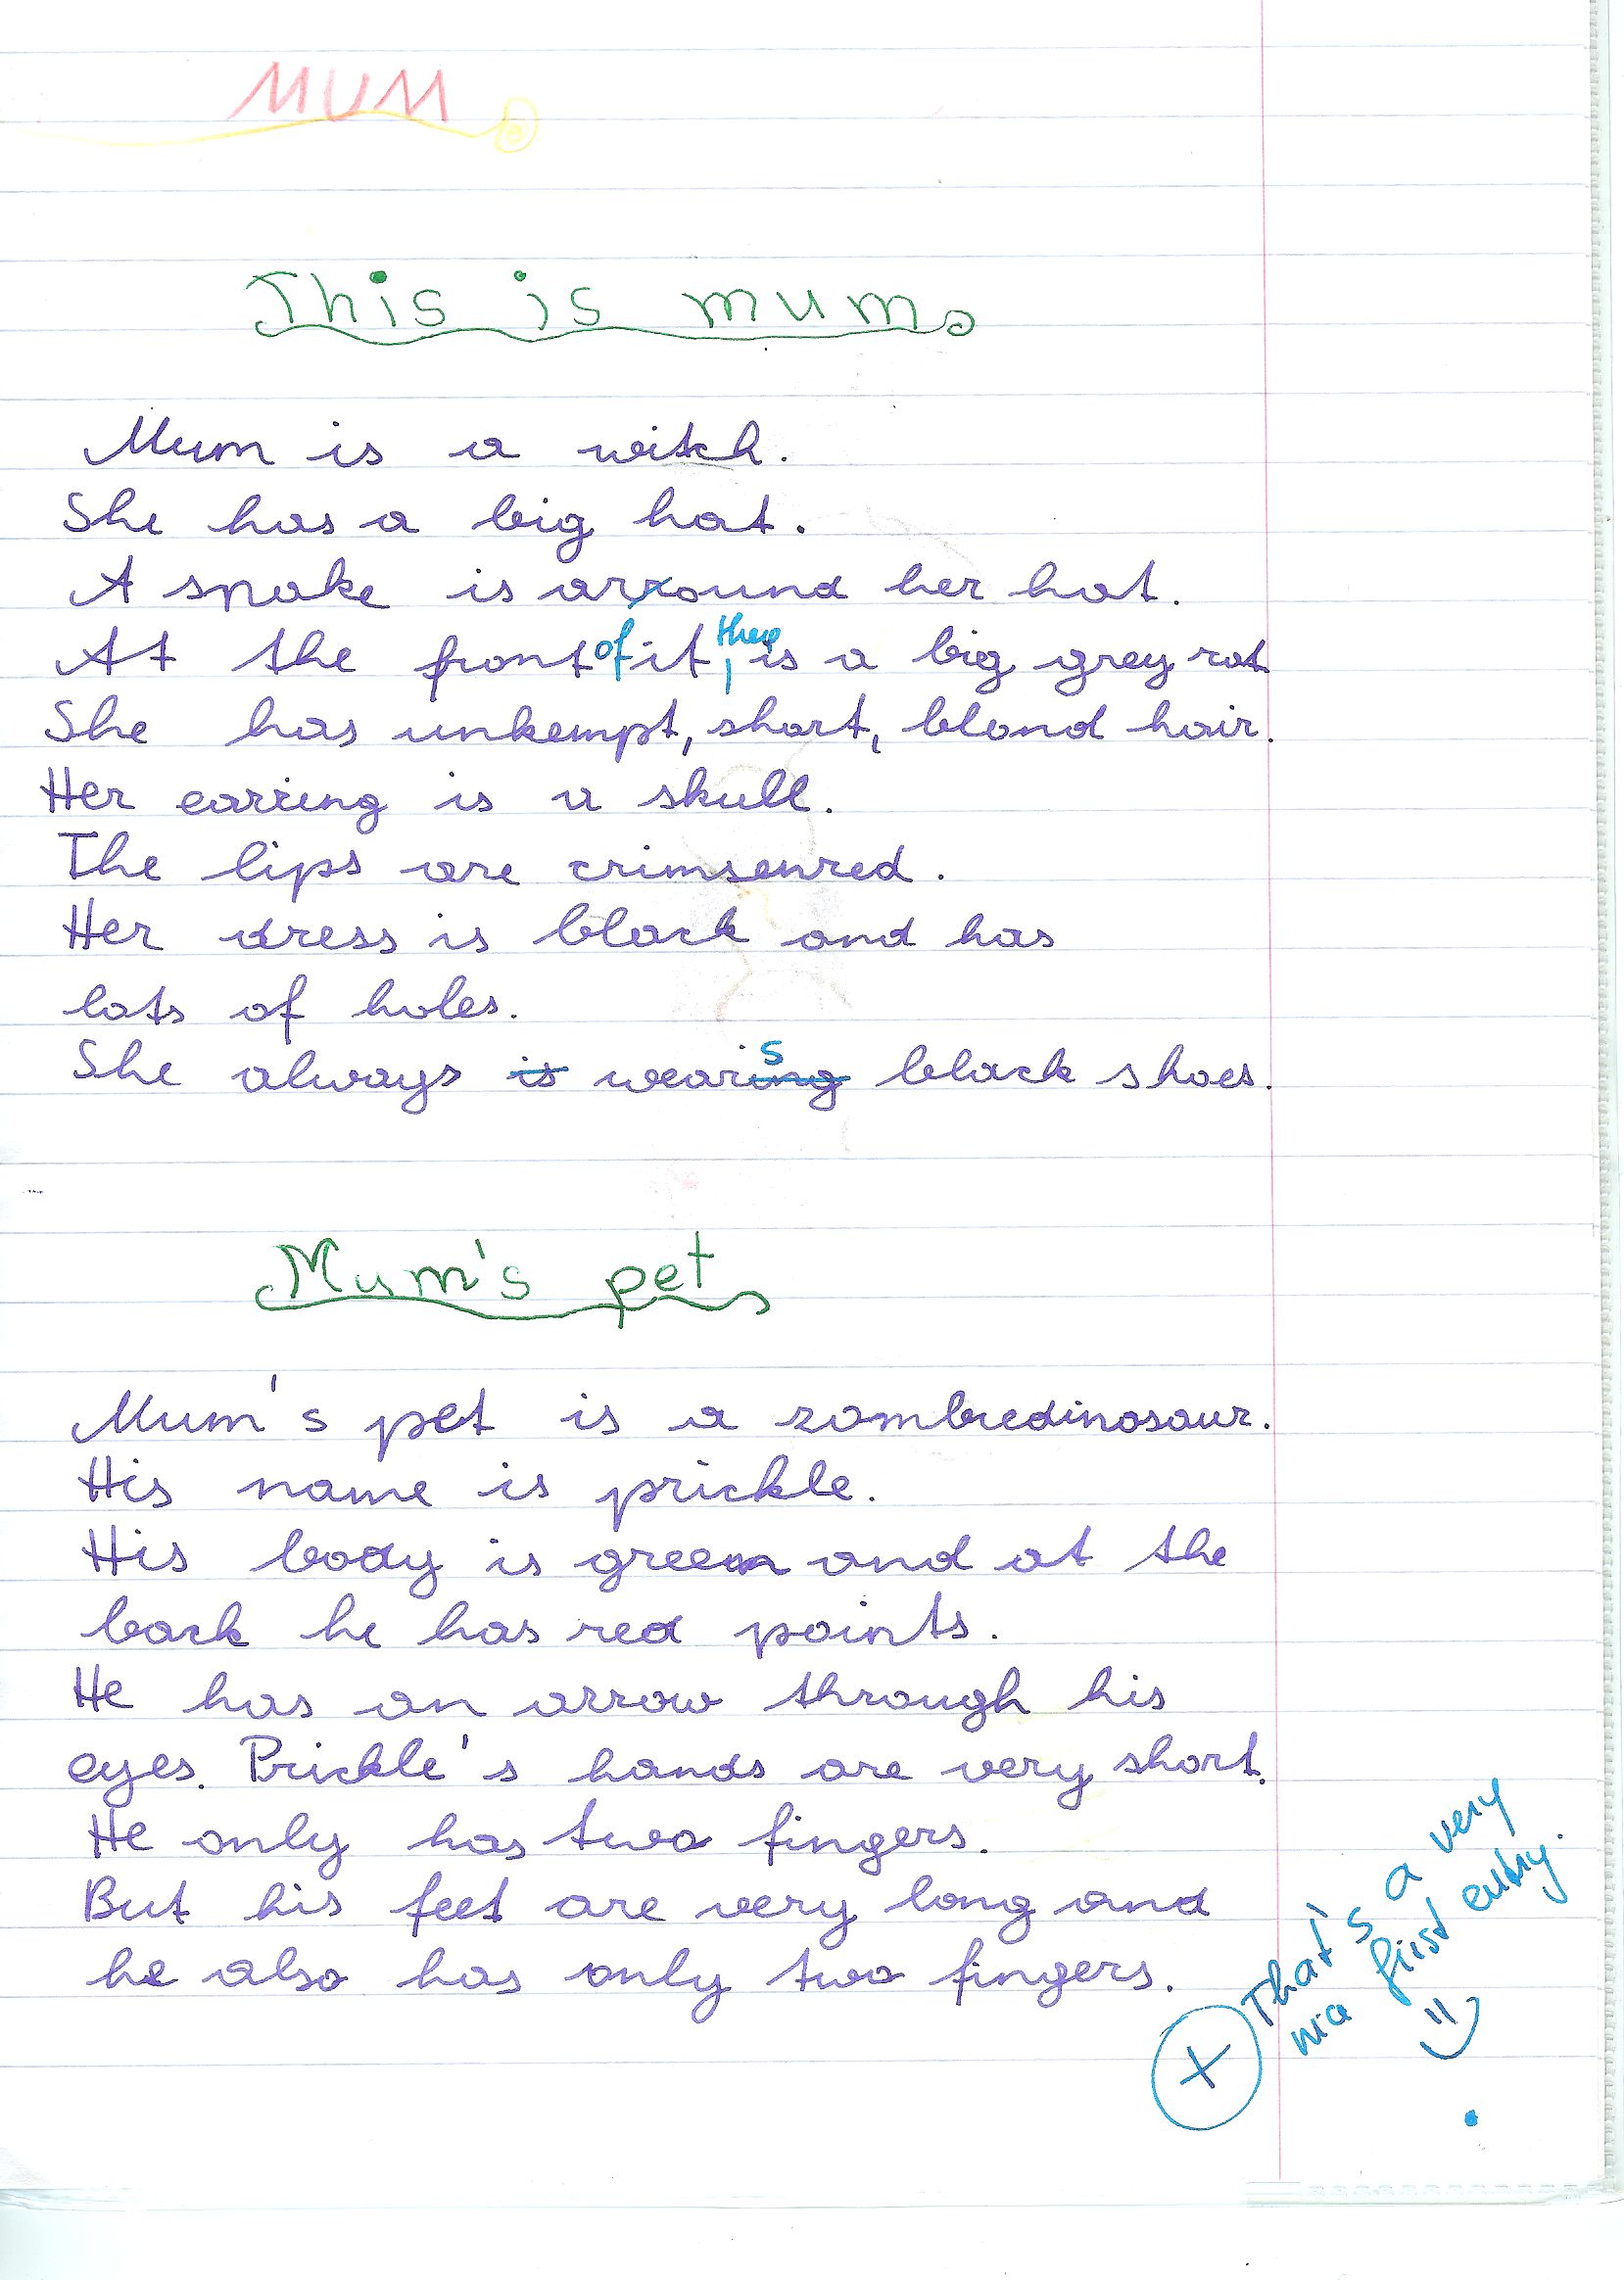 MUM
This is mum
Mum is a witch.
She has a big hat.
A snake is arround her hat.
At the front of it, there is a big grey rat
She has unkempt, short, blond hair.
Her earring is a skull.
The lips are crimsenred.
Her dress is black and has
lots of holes.
She always is wearing s black shoes.
Mum's pet
Mum's pet is a zombiedinosaur.
His name is prickle.
His body is green and at the
back he has red points.
He has an arrow through his
eyes. Prickle's hands are very short.
He only has two fingers.
But his feet are very long and
he also has only two fingers.
+ That's a very
nice first entry.